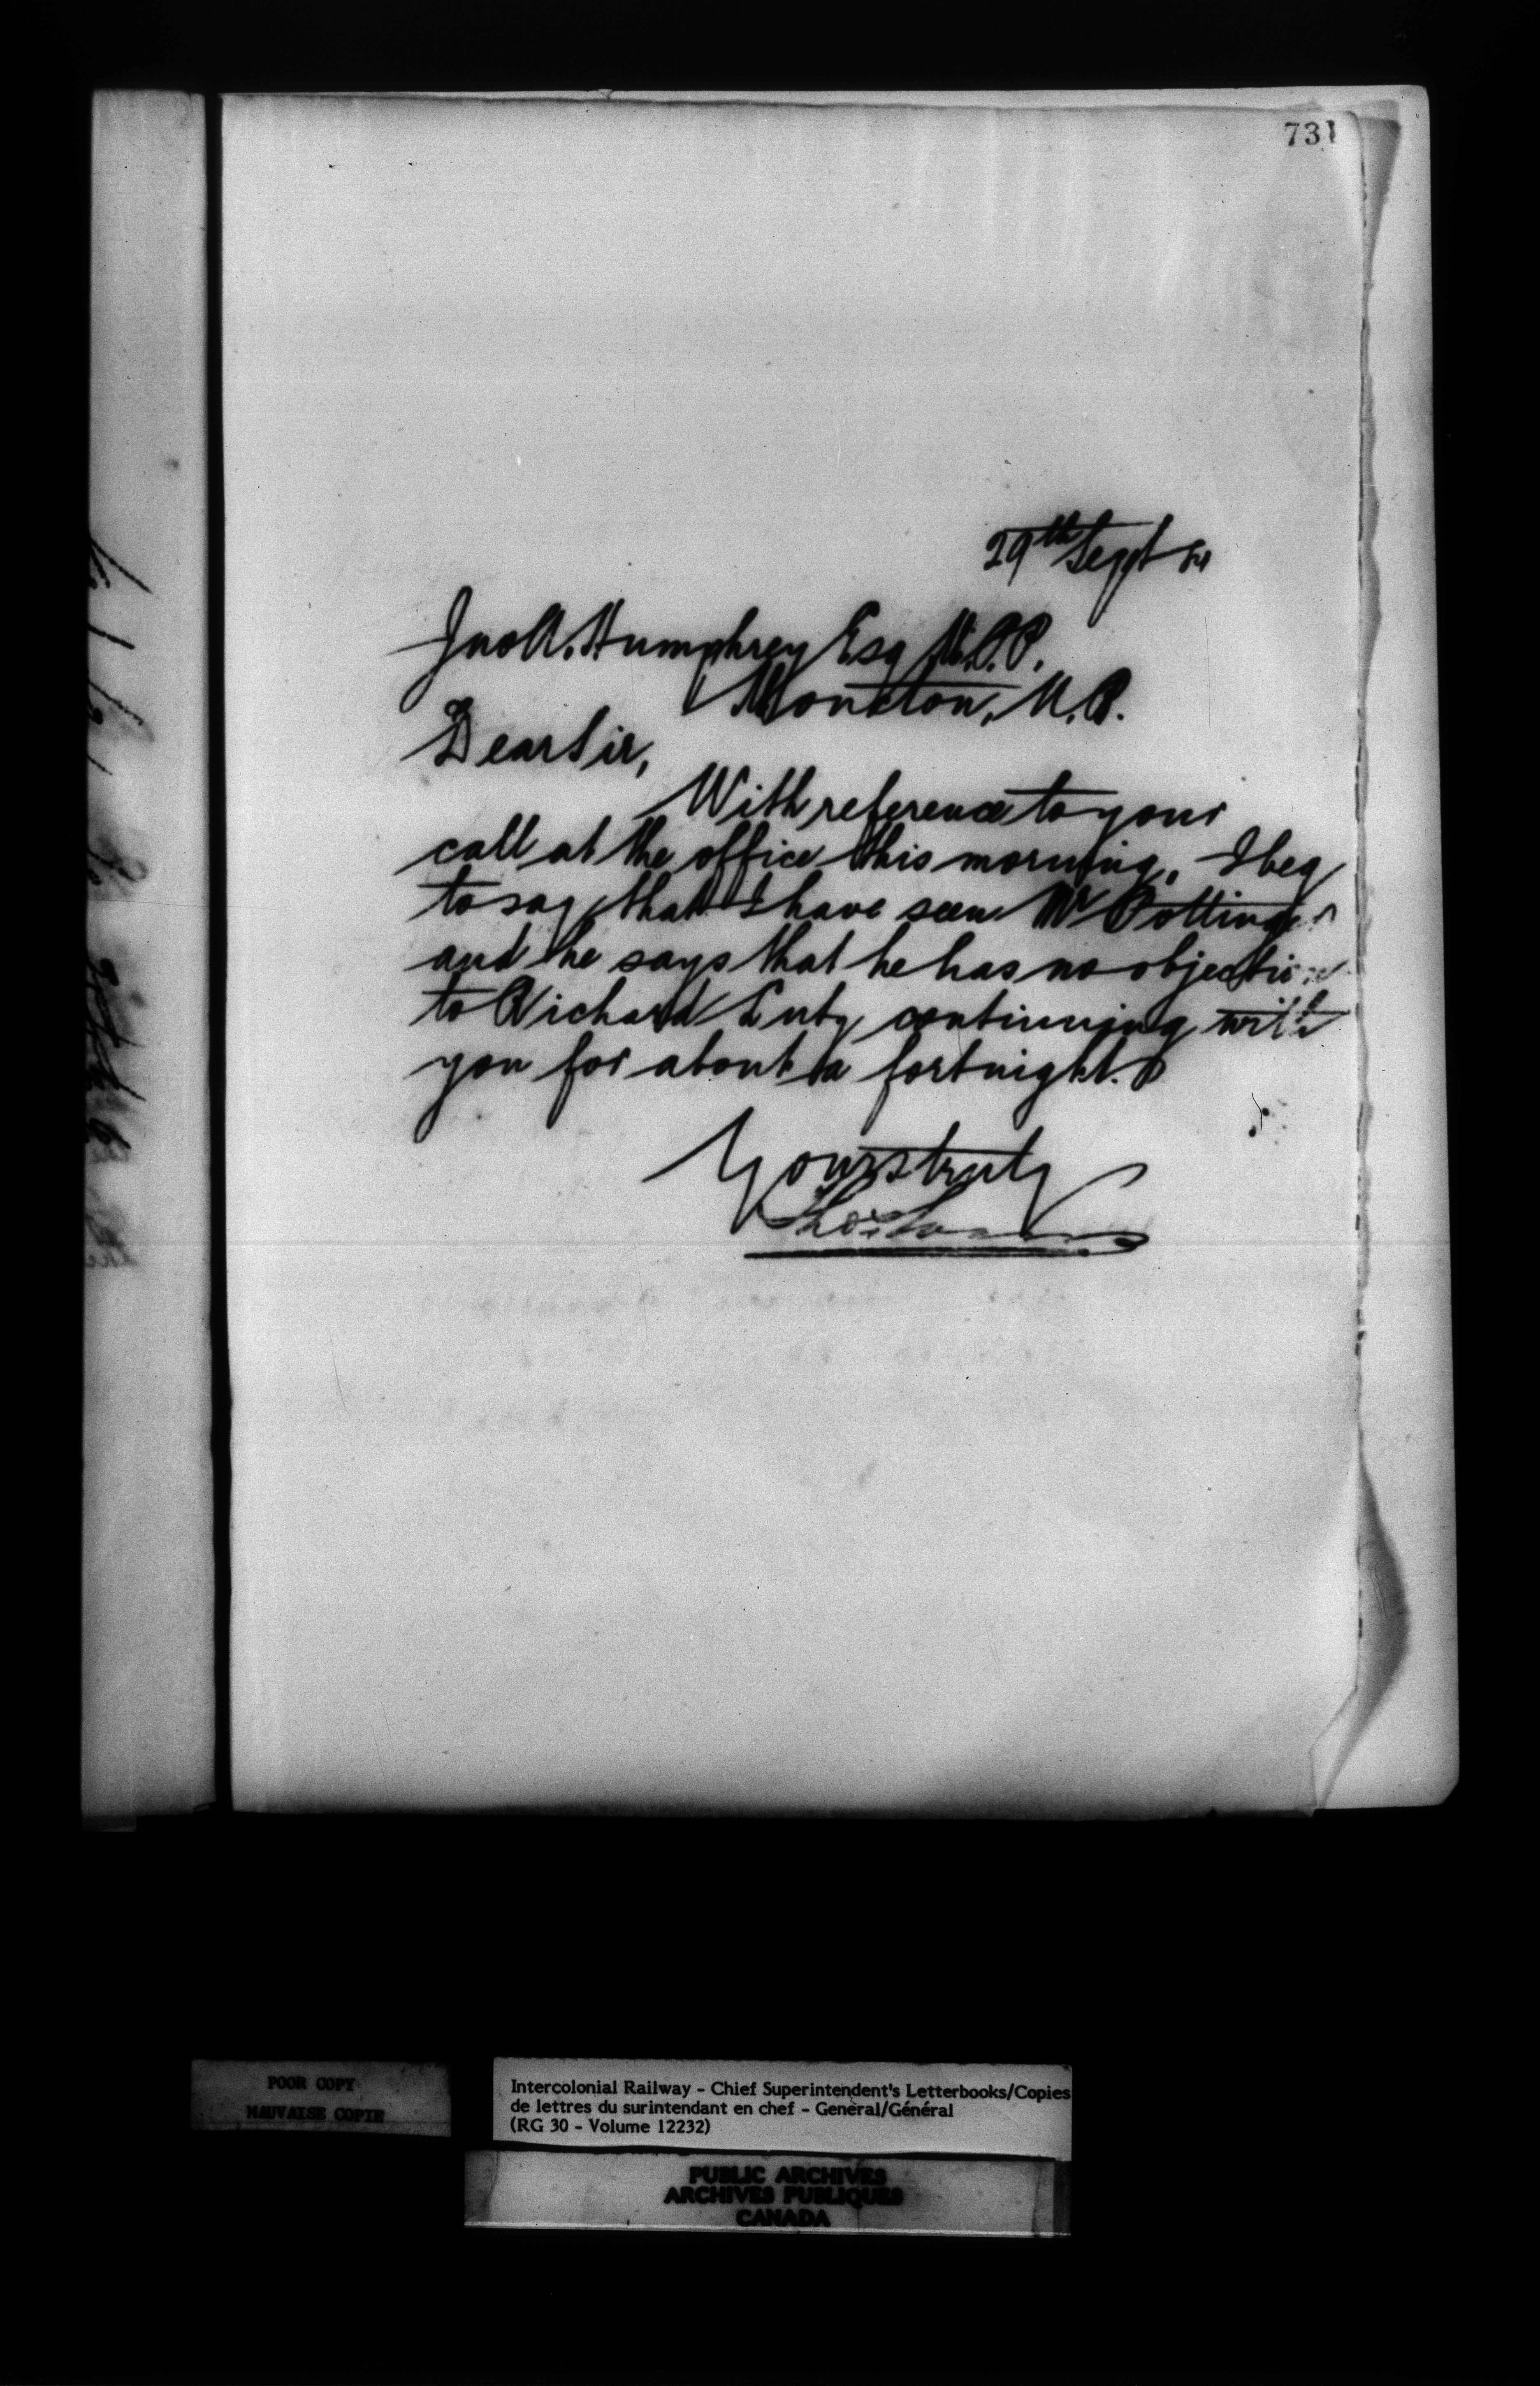 731
29th Sept 84
Jno A. Humphrey Esq M.P.P.
Moncton, N.B.
Dear Sir,
With reference to your
call at the office this morning, I beg
to say that I have seen Mr Pottinger
and he says that he has no objection
to Richard Luty continuing with
you for about a fortnight.
Yours truly
POOR COPY
MAUVAISE COPIE
Intercolonial Railway - Chief Superintendent's Letterbooks/Copies
de lettres du surintendant en chef - General/Général
(RG 30 - Volume 12232)
PUBLIC ARCHIVES
ARCHIVES PUBLIQUES
CANADA